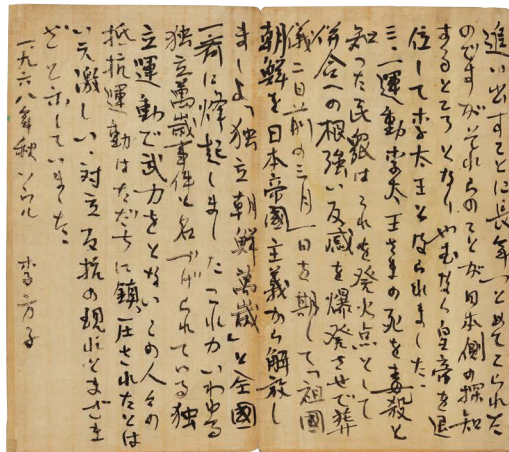 追い出すことに長年つとめてこられた
のですがそれらのことが日本側の探知
するところとなりやむなく皇帝を退
位して李太王となられました、
三、一運動李太王さまの死を毒殺と
知った民衆はこれを発火点として
併合への根強い反感を爆発させて葬
儀二日前の三月一日を期して「祖国
朝鮮を日本帝國主義から解放し
ましょう、独立朝鮮萬歳」と全國
一斉に烽起しましたこれがいわゆる
独立萬歳事件と名づけられている独
立運動で武力をともなわない この人々の
抵抗運動はただちに鎮圧されたとは
いえ激しい対立反抗の現れをまざま
ざと示していました、
一九六八年秋ソウル
李方子